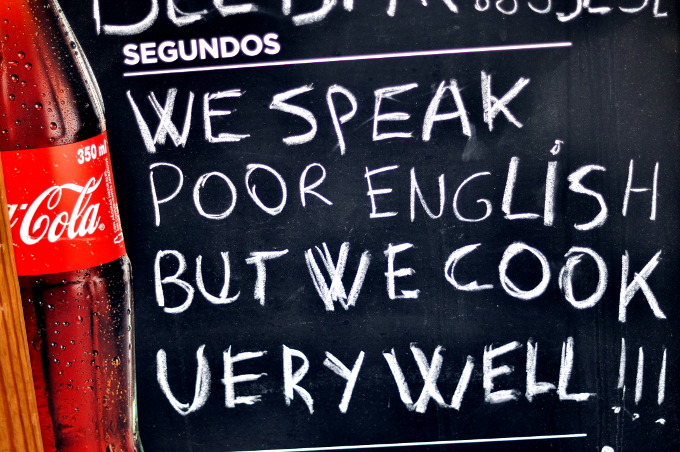 SEGUNDOS
WE SPEAK
POOR ENGLiSH
BUT WE COOK
VERY WELL !!!
350 ml
Cola